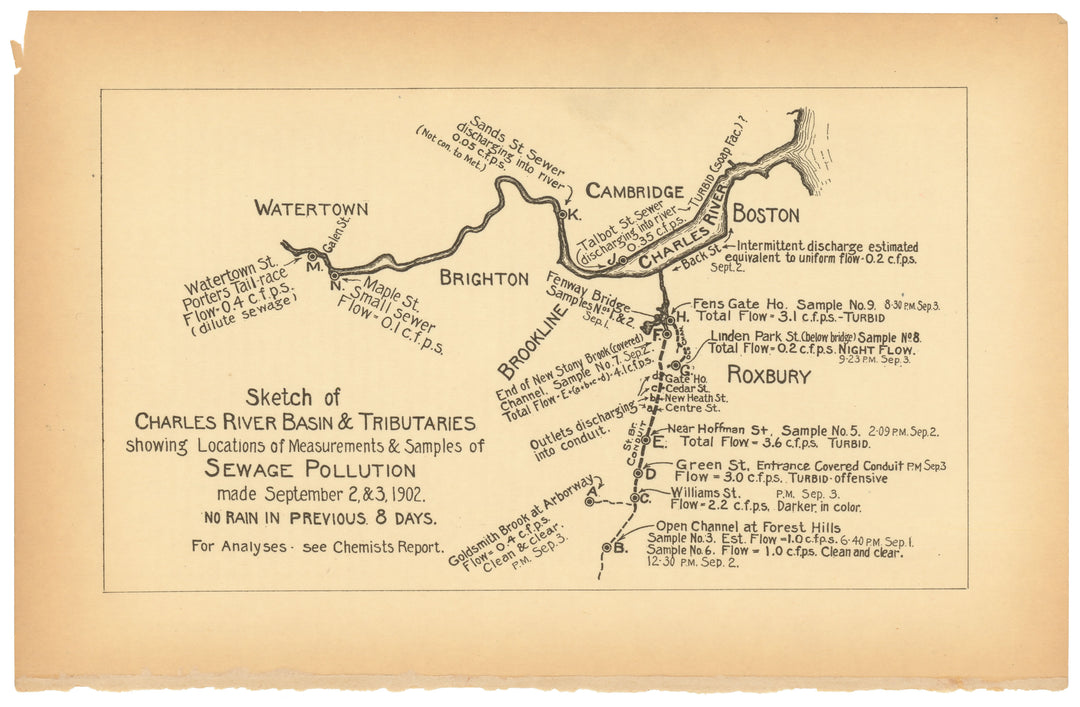 Sands St. Sewer
discharging into river
0.05 c.f.p.s.
(Not con. to Met.)
K.
CAMBRIDGE
TURBID (Soap Fac.)?
WATERTOWN
Galen St.
M.
N.
Talbot St. Sewer
discharging into river
0.35 c.f.p.s.
J
CHARLES RIVER
BOSTON
Back St.
Sept. 2.
Intermittent discharge estimated
equivalent to uniform flow-0.2 c.f.p.s.
Watertown St.
Porters Tail-race
Flow-0.4 c.f.p.s.
(dilute sewage)
Maple St.
Small sewer
Flow=0.1 c.f.p.s.
BRIGHTON
BROOKLINE
Fenway Bridge
Samples Nos 1. & 2.
Sep. 1.
H.
Fens Gate Ho. Sample No. 9. 8-30 P.M. Sep. 3.
Total Flow = 3.1 c.f.p.s.-TURBID
F.
Linden Park St. (below bridge) Sample No 8.
Total Flow = 0.2 c.f.p.s. NIGHT FLOW.
9-23 P.M. Sep. 3.
G.
End of New Stony Brook (covered)
Channel. Sample No. 7. Sep. 2.
Total Flow-E+(a+b+c+d)-4.1 c.f.p.s.
ROXBURY
d Gate Ho.
c Cedar St.
b New Heath St.
a Centre St.
Outlets discharging
into conduit.
St. Br.
CONDUIT
E.
Near Hoffman St. Sample No. 5. 2-09 P.M. Sep. 2.
Total Flow = 3.6 c.f.p.s. TURBID.
D
Green St. Entrance Covered Conduit P.M Sep 3
Flow = 3.0 c.f.p.s. TURBID-offensive
C.
Williams St. P.M. Sep. 3.
Flow = 2.2 c.f.p.s. Darker in color.
A
Goldsmith Brook at Arborway
Flow = 0.4 c.f.p.s.
Clean & clear.
P.M. Sep. 3.
B.
Open Channel at Forest Hills
Sample No. 3. Est. Flow = 1.0 c.f.p.s. 6-40 P.M. Sep. 1.
Sample No. 6. Flow = 1.0 c.f.p.s. Clean and clear.
12-30 P.M. Sep. 2.
Sketch of
CHARLES RIVER BASIN & TRIBUTARIES
showing Locations of Measurements & Samples of
SEWAGE POLLUTION
made September 2, & 3, 1902.
NO RAIN IN PREVIOUS 8 DAYS.
For Analyses - see Chemists Report.